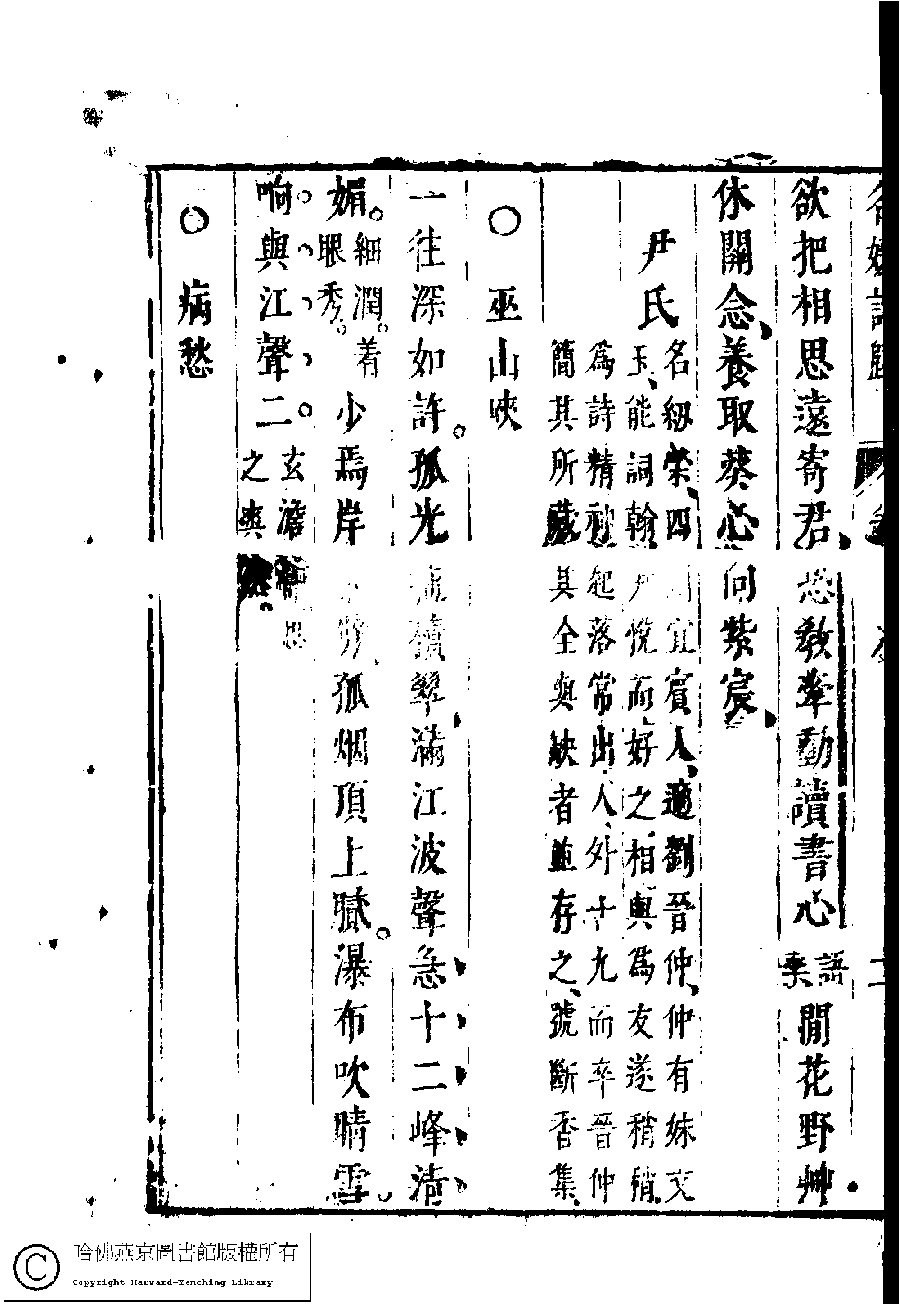 名媛詩歸
欲把相思遠寄君恐教牽動讀書心語棄閒花野艸
休關念養取葵心向紫宸
尹氏
名紉榮四川宜賓人適劉晉仲仲有妹文
玉能詞翰尹悅而好之相與為友遂稍稍
為詩精神起落常出人外十九而卒晉仲
簡其所藏其全與缺者並存之號斷香集
○巫山峽
一往深如許孤光翠滿江波聲急十二峰清
媚細潤着眼秀少焉岸孤烟頂上賦瀑布吹晴雪
响與江聲二玄澹之與
○病愁
哈佛燕京圖書館版權所有
Copyright Harvard-Yenching Library